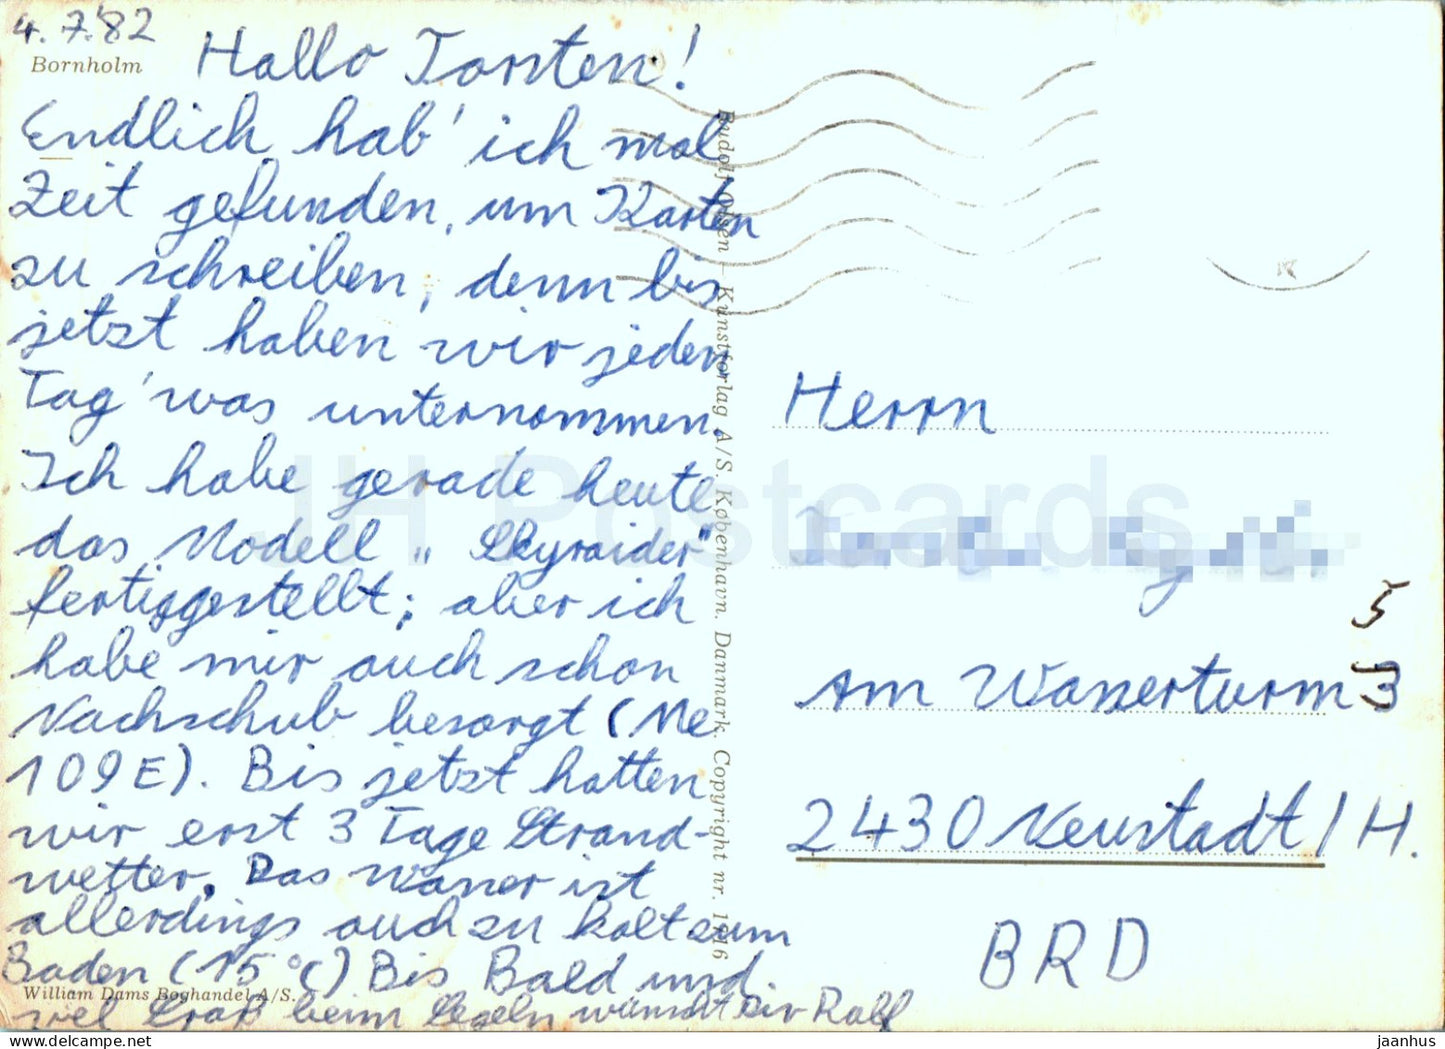 4.7.82
Bornholm
Hallo Torsten!
Endlich hab' ich mal
Zeit gefunden, um Karten
zu schreiben, denn bis
jetzt haben wir jeden
Tag 'was unternommen.
Ich habe gerade heute
das Modell „Skyraider"
fertiggestellt; aber ich
habe mir auch schon
Nachschub besorgt (Me
109E). Bis jetzt hatten
wir erst 3 Tage Strand-
wetter. Das Wasser ist
allerdings auch zu kalt zum
Baden (15°C) Bis Bald und
viel Spaß beim Segeln wünscht Dir Ralf
William Dams Boghandel A/S.
Rudolf Olsen - Kunstforlag A/S. København. Danmark. Copyright nr. 1916
Herrn
Am Wasserturm 3
5
2430 Neustadt/H.
BRD
JH Postcards
www.delcampe.net
jaanhus